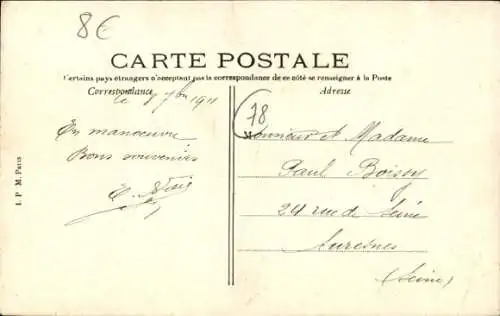 8€
CARTE POSTALE
Certains pays étrangers n'acceptant pas la correspondance de ce côté se renseigner à la Poste
Correspondance
Adresse
le 7 7bre 1911
78
En manoeuvre
Bons souvenirs
Monsieur et Madame
Paul Boissy
24 rue de Seine
Suresnes
(Seine)
I. P. M. Paris